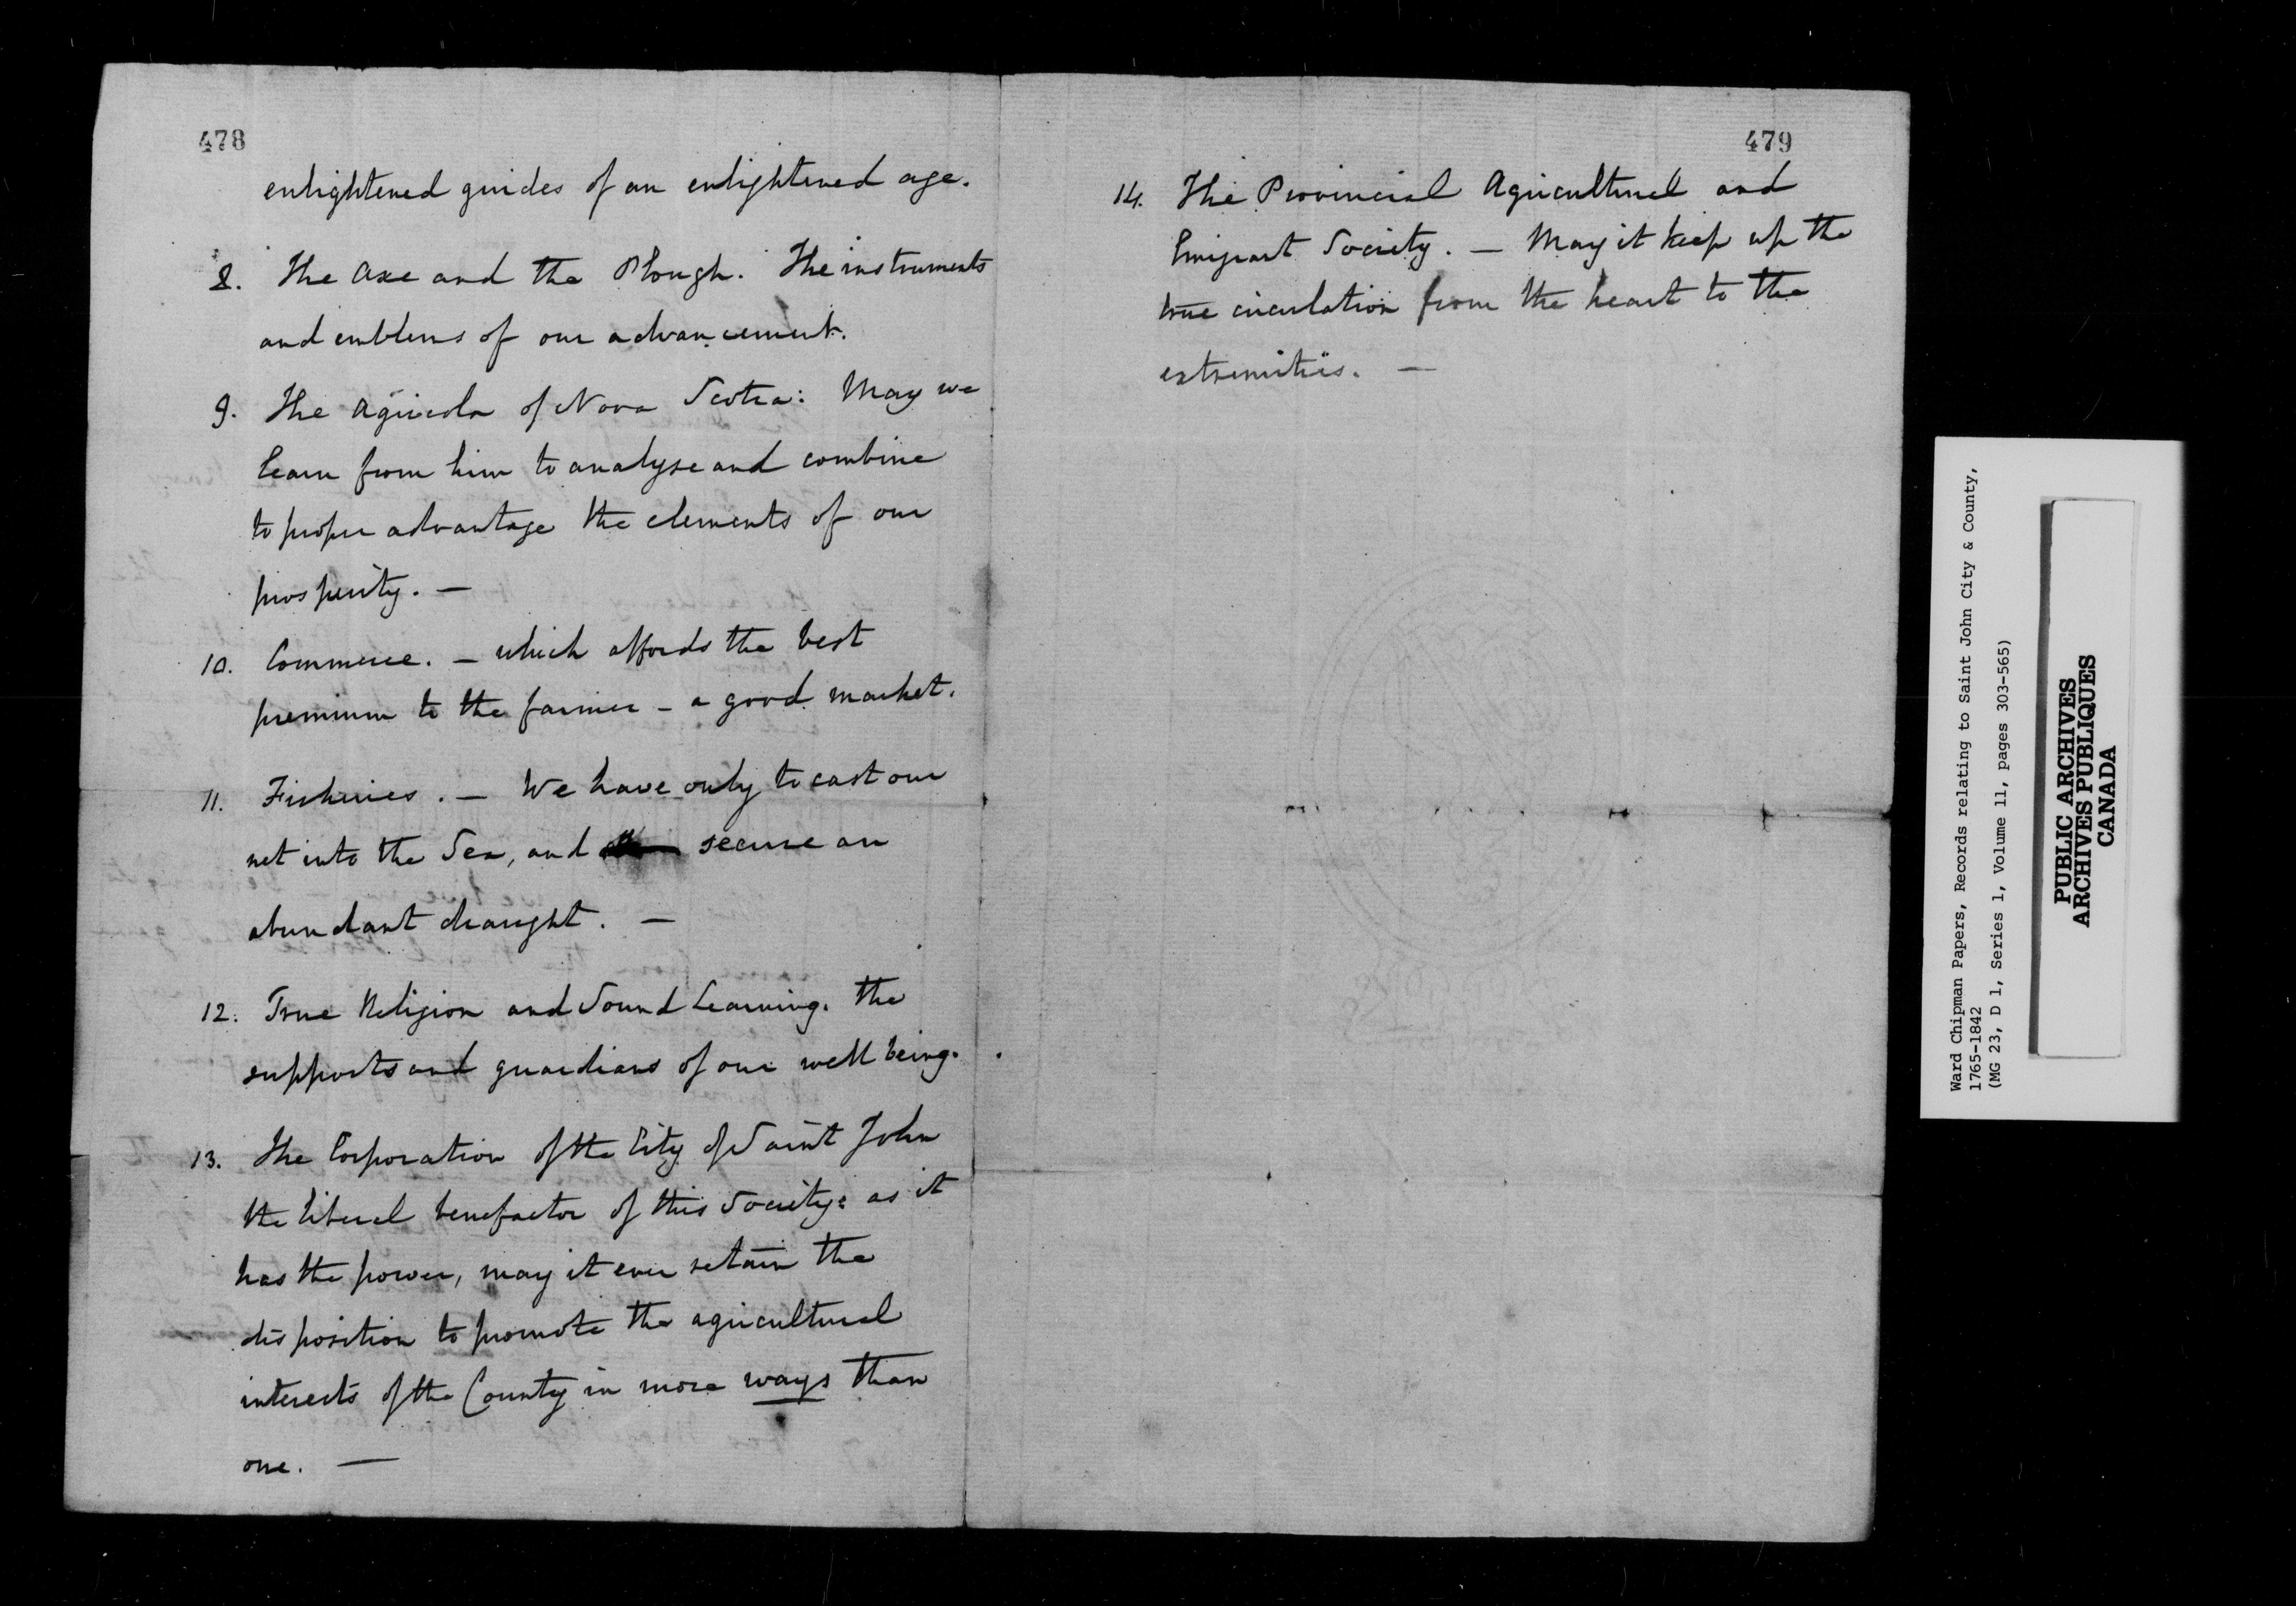 478
enlightened guides of an enlightened age.
8. The Axe and the Plough. The instruments
and emblems of our advancement.
9. The Agricola of Nova Scotia: May we
learn from him to analyse and combine
to proper advantage the elements of our
prosperity. —
10. Commerce. — which affords the best
premium to the farmer - a good market.
11. Fisheries. — We have only to cast our
net into the Sea, and secure an
abundant draught. —
12. True Religion and Sound Learning. the
supports and guardians of our well being.
13. The Corporation of the City of Saint John
the liberal benefactor of this Society: as it
has the power, may it ever retain the
disposition to promote the agricultural
interests of the County in more ways than
one. —
479
14. The Provincial Agricultural and
Emigrant Society. — May it keep up the
true circulation from the heart to the
extremities. —
Ward Chipman Papers, Records relating to Saint John City & County,
1765-1842
(MG 23, D 1, Series 1, Volume 11, pages 303-565)
PUBLIC ARCHIVES
ARCHIVES PUBLIQUES
CANADA